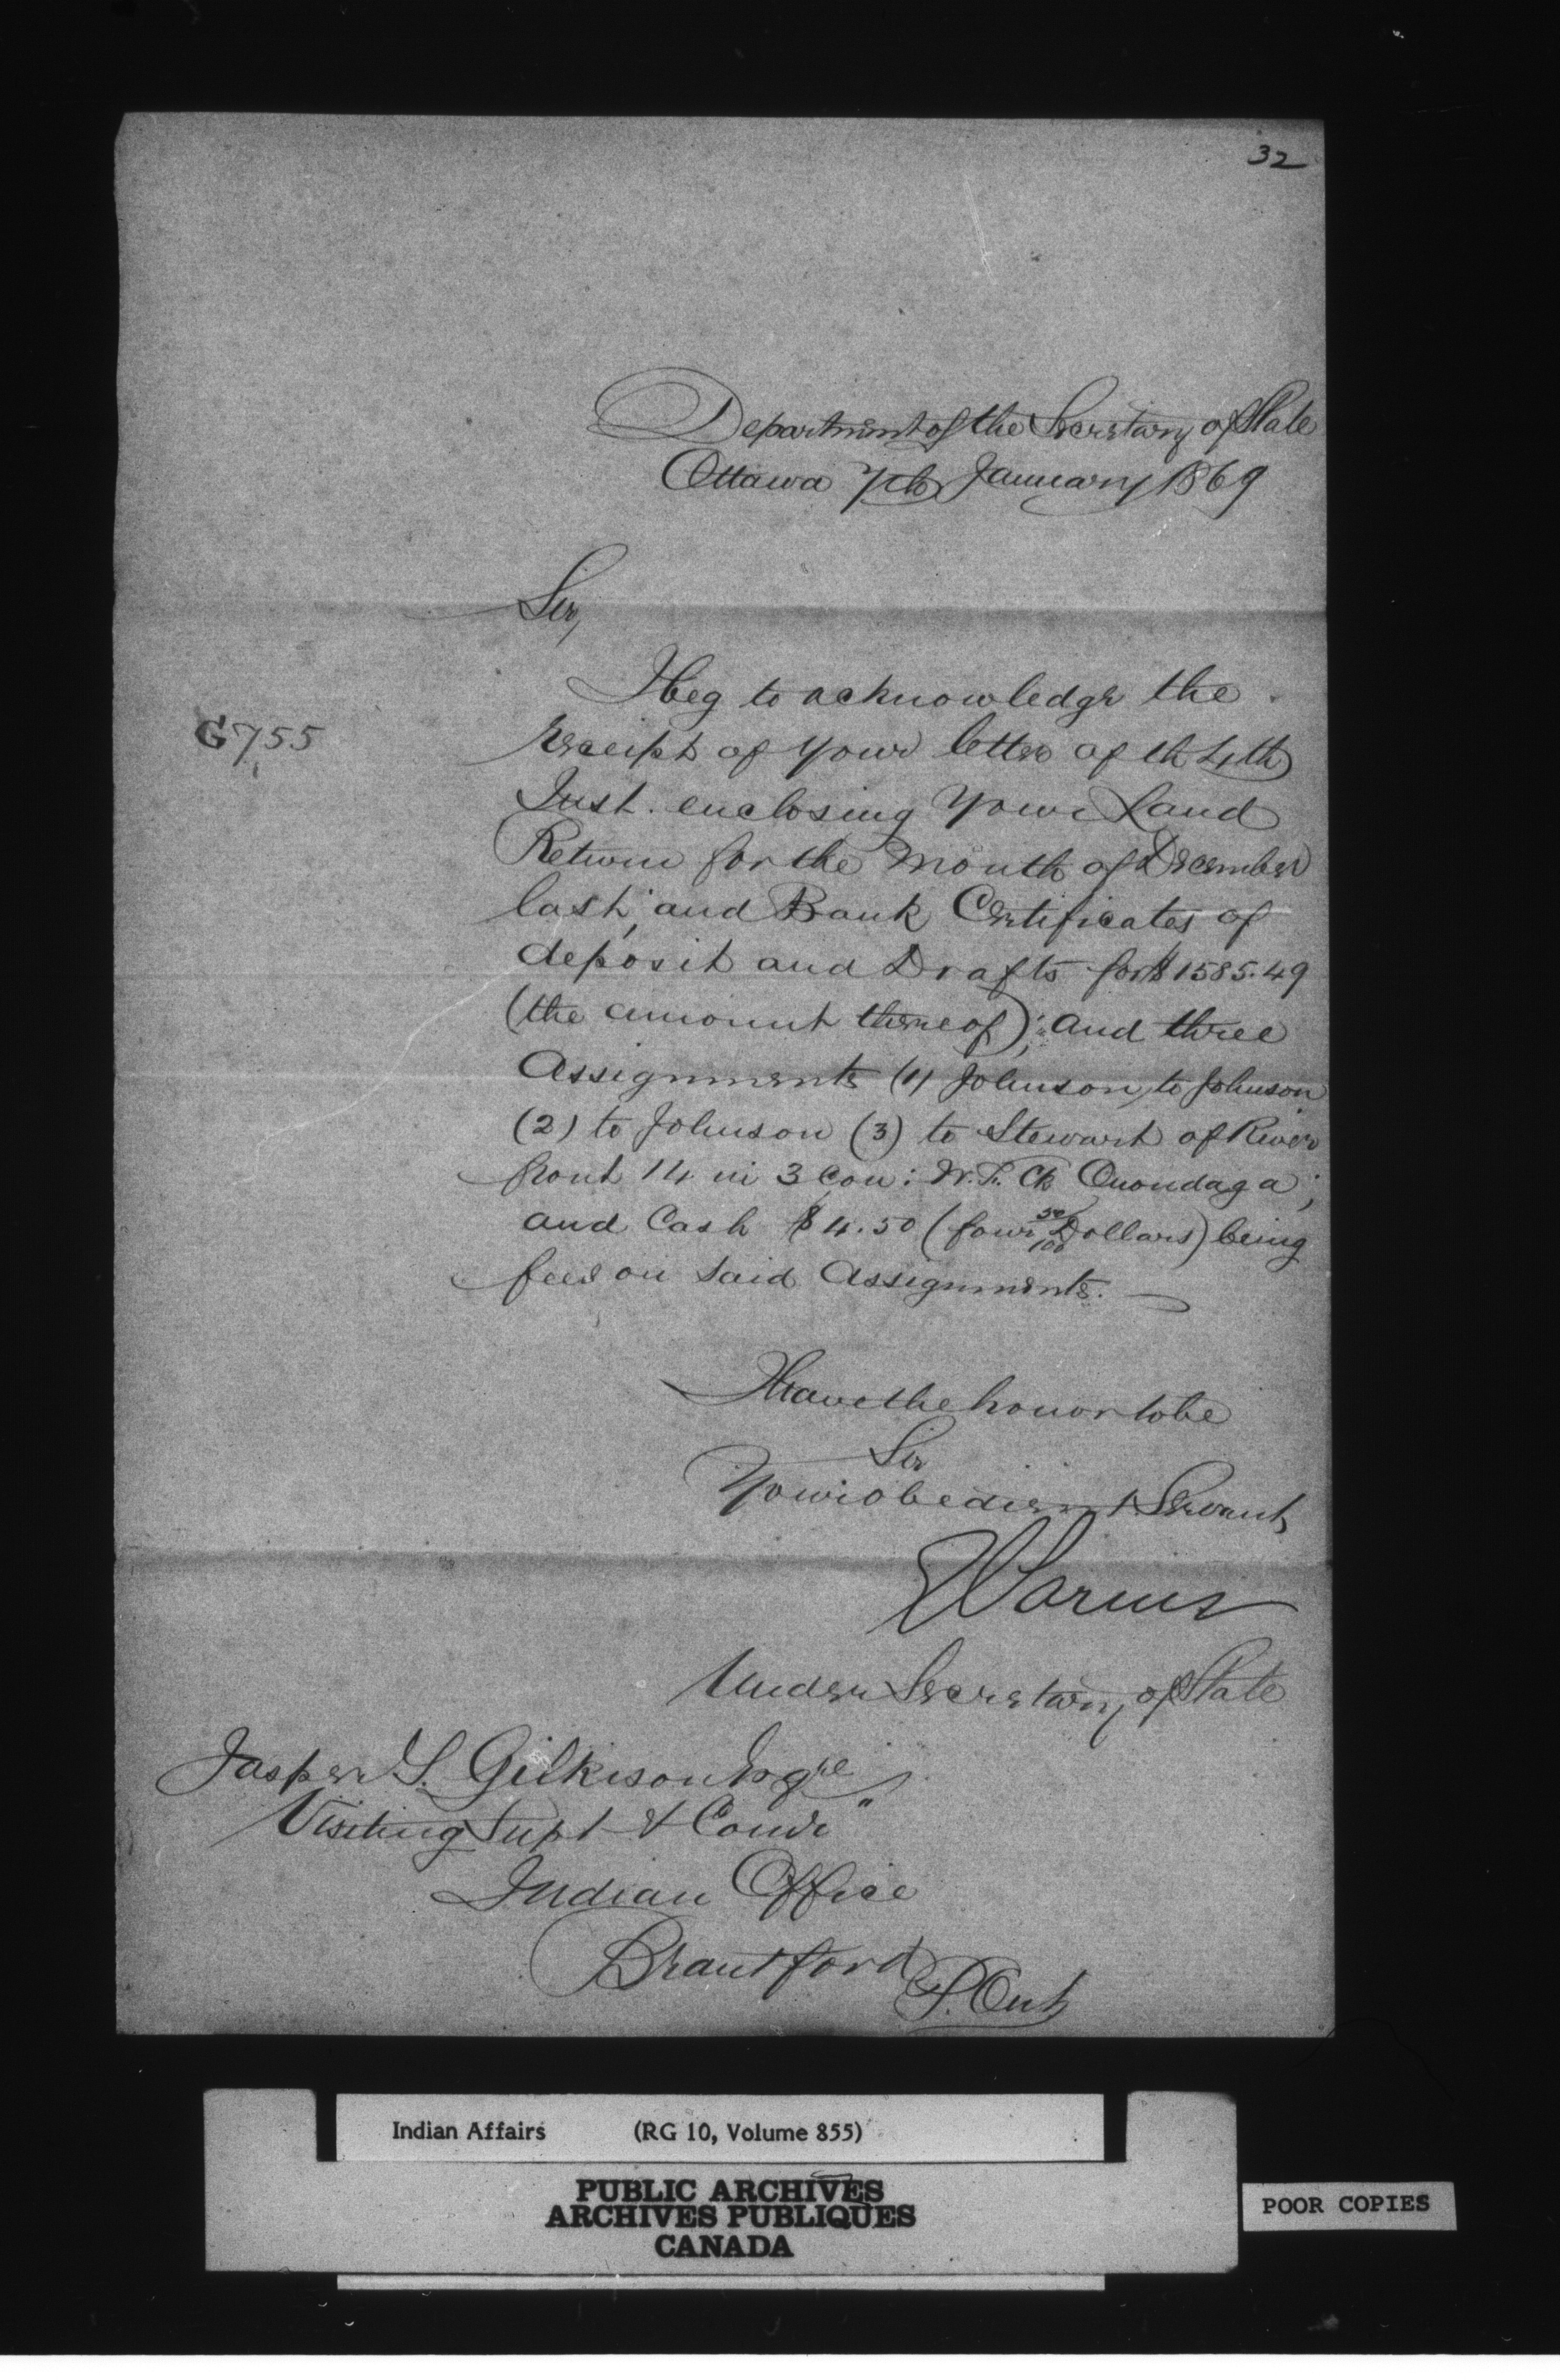 32
Department of the Secretary of State
Ottawa 7th January 1869
Sir,
I beg to acknowledge the
G755
receipt of your letter of th 4th
Inst. enclosing your Land
Return for the month of December
last; and Bank Certificates of
deposit and Drafts for $1585.49
(the amount thereof); and three
Assignments (1) Johnson to Johnson
(2) to Johnson (3) to Stewart of River
front 14 in 3 Con: Onondaga;
and Cash $4.50 (four 50/100 Dollars) being
fees on said Assignments.
I have the honor to be
Sir
Your obedient Servant
Under Secretary of State
Jasper T. Gilkison Esqre
Visiting Supt &
Indian Office
Brantford
P. Ont
Indian Affairs (RG 10, Volume 855)
PUBLIC ARCHIVES
ARCHIVES PUBLIQUES
CANADA
POOR COPIES